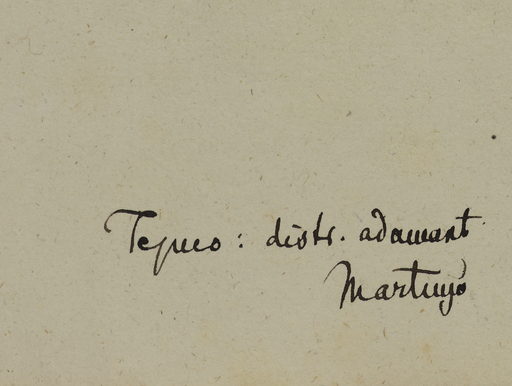 Tejuco : distr. adamant
Martius